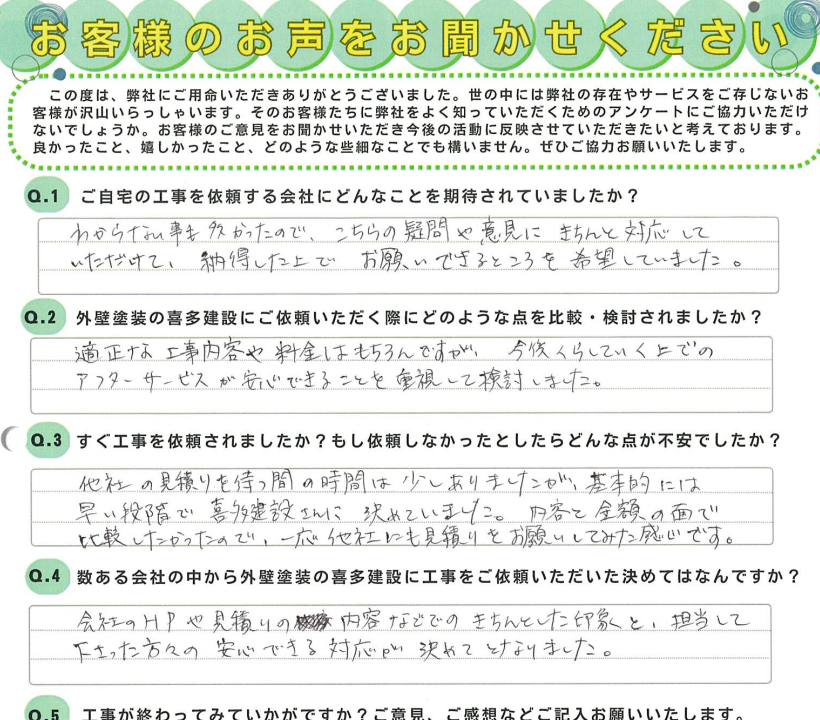 お客様のお声をお聞かせください
この度は、弊社にご用命いただきありがとうございました。世の中には弊社の存在やサービスをご存じないお
客様が沢山いらっしゃいます。そのお客様たちに弊社をよく知っていただくためのアンケートにご協力いただけ
ないでしょうか。お客様のご意見をお聞かせいただき今後の活動に反映させていただきたいと考えております。
良かったこと、嬉しかったこと、どのような些細なことでも構いません。ぜひご協力お願いいたします。
Q.1 ご自宅の工事を依頼する会社にどんなことを期待されていましたか？
わからない事も多かったので、こちらの疑問や意見に きちんと対応して
いただけて、納得した上で お願いできるところを希望していました。
Q.2 外壁塗装の喜多建設にご依頼いただく際にどのような点を比較・検討されましたか？
適正な工事内容や料金はもちろんですが、今後くらしていく上での
アフターサービスが安心できることを重視して検討しました。
Q.3 すぐ工事を依頼されましたか？もし依頼しなかったとしたらどんな点が不安でしたか？
他社の見積りを待つ間の時間は少しありましたが、基本的には
早い段階で喜多建設さんに決めていました。内容と金額の面で
比較したかったので、一応他社にも見積りをお願いしてみた感じです。
Q.4 数ある会社の中から外壁塗装の喜多建設に工事をご依頼いただいた決めてはなんですか？
会社のHPや見積りの内容などでのきちんとした印象と、担当して
下さった方々の安心できる対応が決めてとなりました。
Q.5 工事が終わってみていかがですか？ご意見、ご感想などご記入お願いいたします。